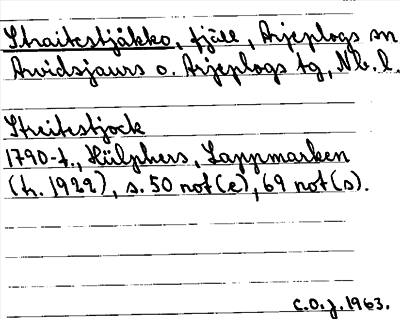 Straitestjåkko, fjäll, Arjeplogs sn
Arvidsjaurs o. Arjeplogs tg, Nb. l.
Streitestjock
1790-t., Hülphers, Lappmarken
(h. 1922), s. 50 not(e), 69 not(s).
C.O.J. 1963.